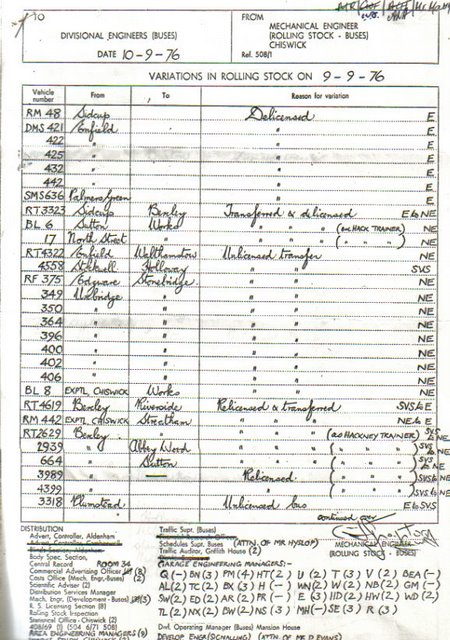 TO
FROM
DIVISIONAL ENGINEERS (BUSES)
MECHANICAL ENGINEER
(ROLLING STOCK - BUSES)
CHISWICK
DATE 10-9-76
Ref. 508/1
VARIATIONS IN ROLLING STOCK ON 9-9-76
Vehicle number From To Reason for variation
RM 48 Sidcup Delicensed E
DMS 421 Enfield " E
422 " " E
425 " " E
432 " " E
442 " " E
SMS 636 Palmers Green " E
RT 3323 Sidcup Bexley Transferred & delicensed E to NE
BL. 6 Sutton Works " " " (as HACK TRAINER) NE
17 North Street " " " " ( " " " ) NE
RT 4322 Enfield Walthamstow Unlicensed transfer NE
4558 Stockwell Holloway " " SVS
RF 375 Edgware Stonebridge " " NE
349 Uxbridge " " " NE
350 " " " " NE
364 " " " " NE
396 " " " " NE
400 " " " " NE
402 " " " " NE
406 " " " " NE
BL. 8 EXPTL, CHISWICK Works " " NE
RT 4619 Bexley Riverside Relicensed & transferred SVS to E
RM 442 EXPTL CHISWICK Streatham " " " NE to E
RT 2629 Bexley " " " " (as HACKNEY TRAINER) SVS to NE
2939 " Abbey Wood " " " ( " " " ) SVS to NE
664 " Sutton " " " ( " " " ) SVS to NE
3989 " — Relicensed ( " " " ) SVS to NE
4399 " " ( " " " ) SVS to NE
3318 Plumstead Unlicensed bus E to SVS
continued over
DISTRIBUTION
Advert, Controller, Aldenham
Body Spec, Section,
Central Record ROOM 34
Commercial Advertising Officer (8)
Costs Office (Mech. Engr.-Buses) (2)
Scientific Adviser (2)
Distribution Services Manager
Mech. Engr. (Development - Buses) (3)
R. S. Licensing Section (8)
Rolling Stock Inspection
Statistical Office - Chiswick (2)
AREA ENGINEERING MANAGERS (9)
Traffic Supt. (Buses)
Schedules Supt. Buses (ATTN. OF MR HYSLOP)
Traffic Auditor, Griffith House (2)
MECHANICAL ENGINEER
(ROLLING STOCK - BUSES)
GARAGE ENGINEERING MANAGERS:-
Q (-) BN (3) FM (4) HT (2) U (2) T (3) V (2) BEA (-)
AL (2) TC (2) BK (3) H (-) WN (2) W (2) NB (2) GM (-)
SW (2) ED (2) AR (2) PR (-) E (3) HD (2) HW (2) WD (2)
TL (2) NX (2) BW (2) NS (3) MH (-) SE (3) R (3)
Divl. Operating Manager (Buses) Mansion House
DEVELOP ENGR (SIGNALLING) (ATTN. OF MR D EVANS)